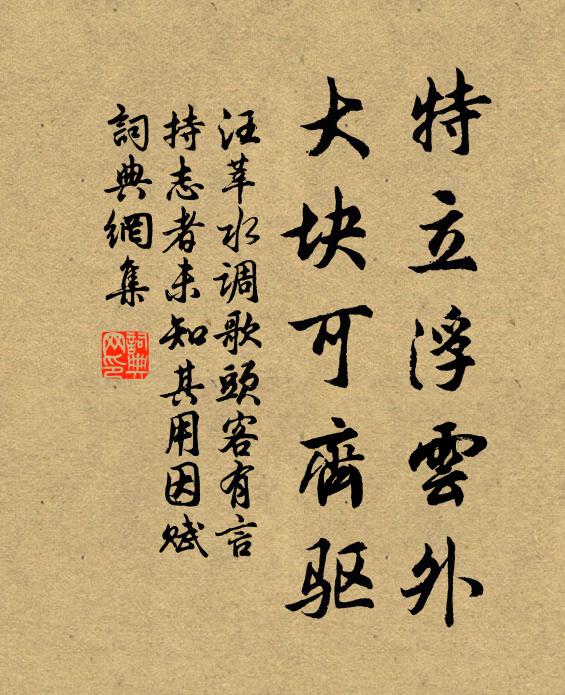 特立浮雲外
大块可齊驱
汪莘水调歌頭客有言
持志者未知其用因赋
詞典網集
詞典
网印